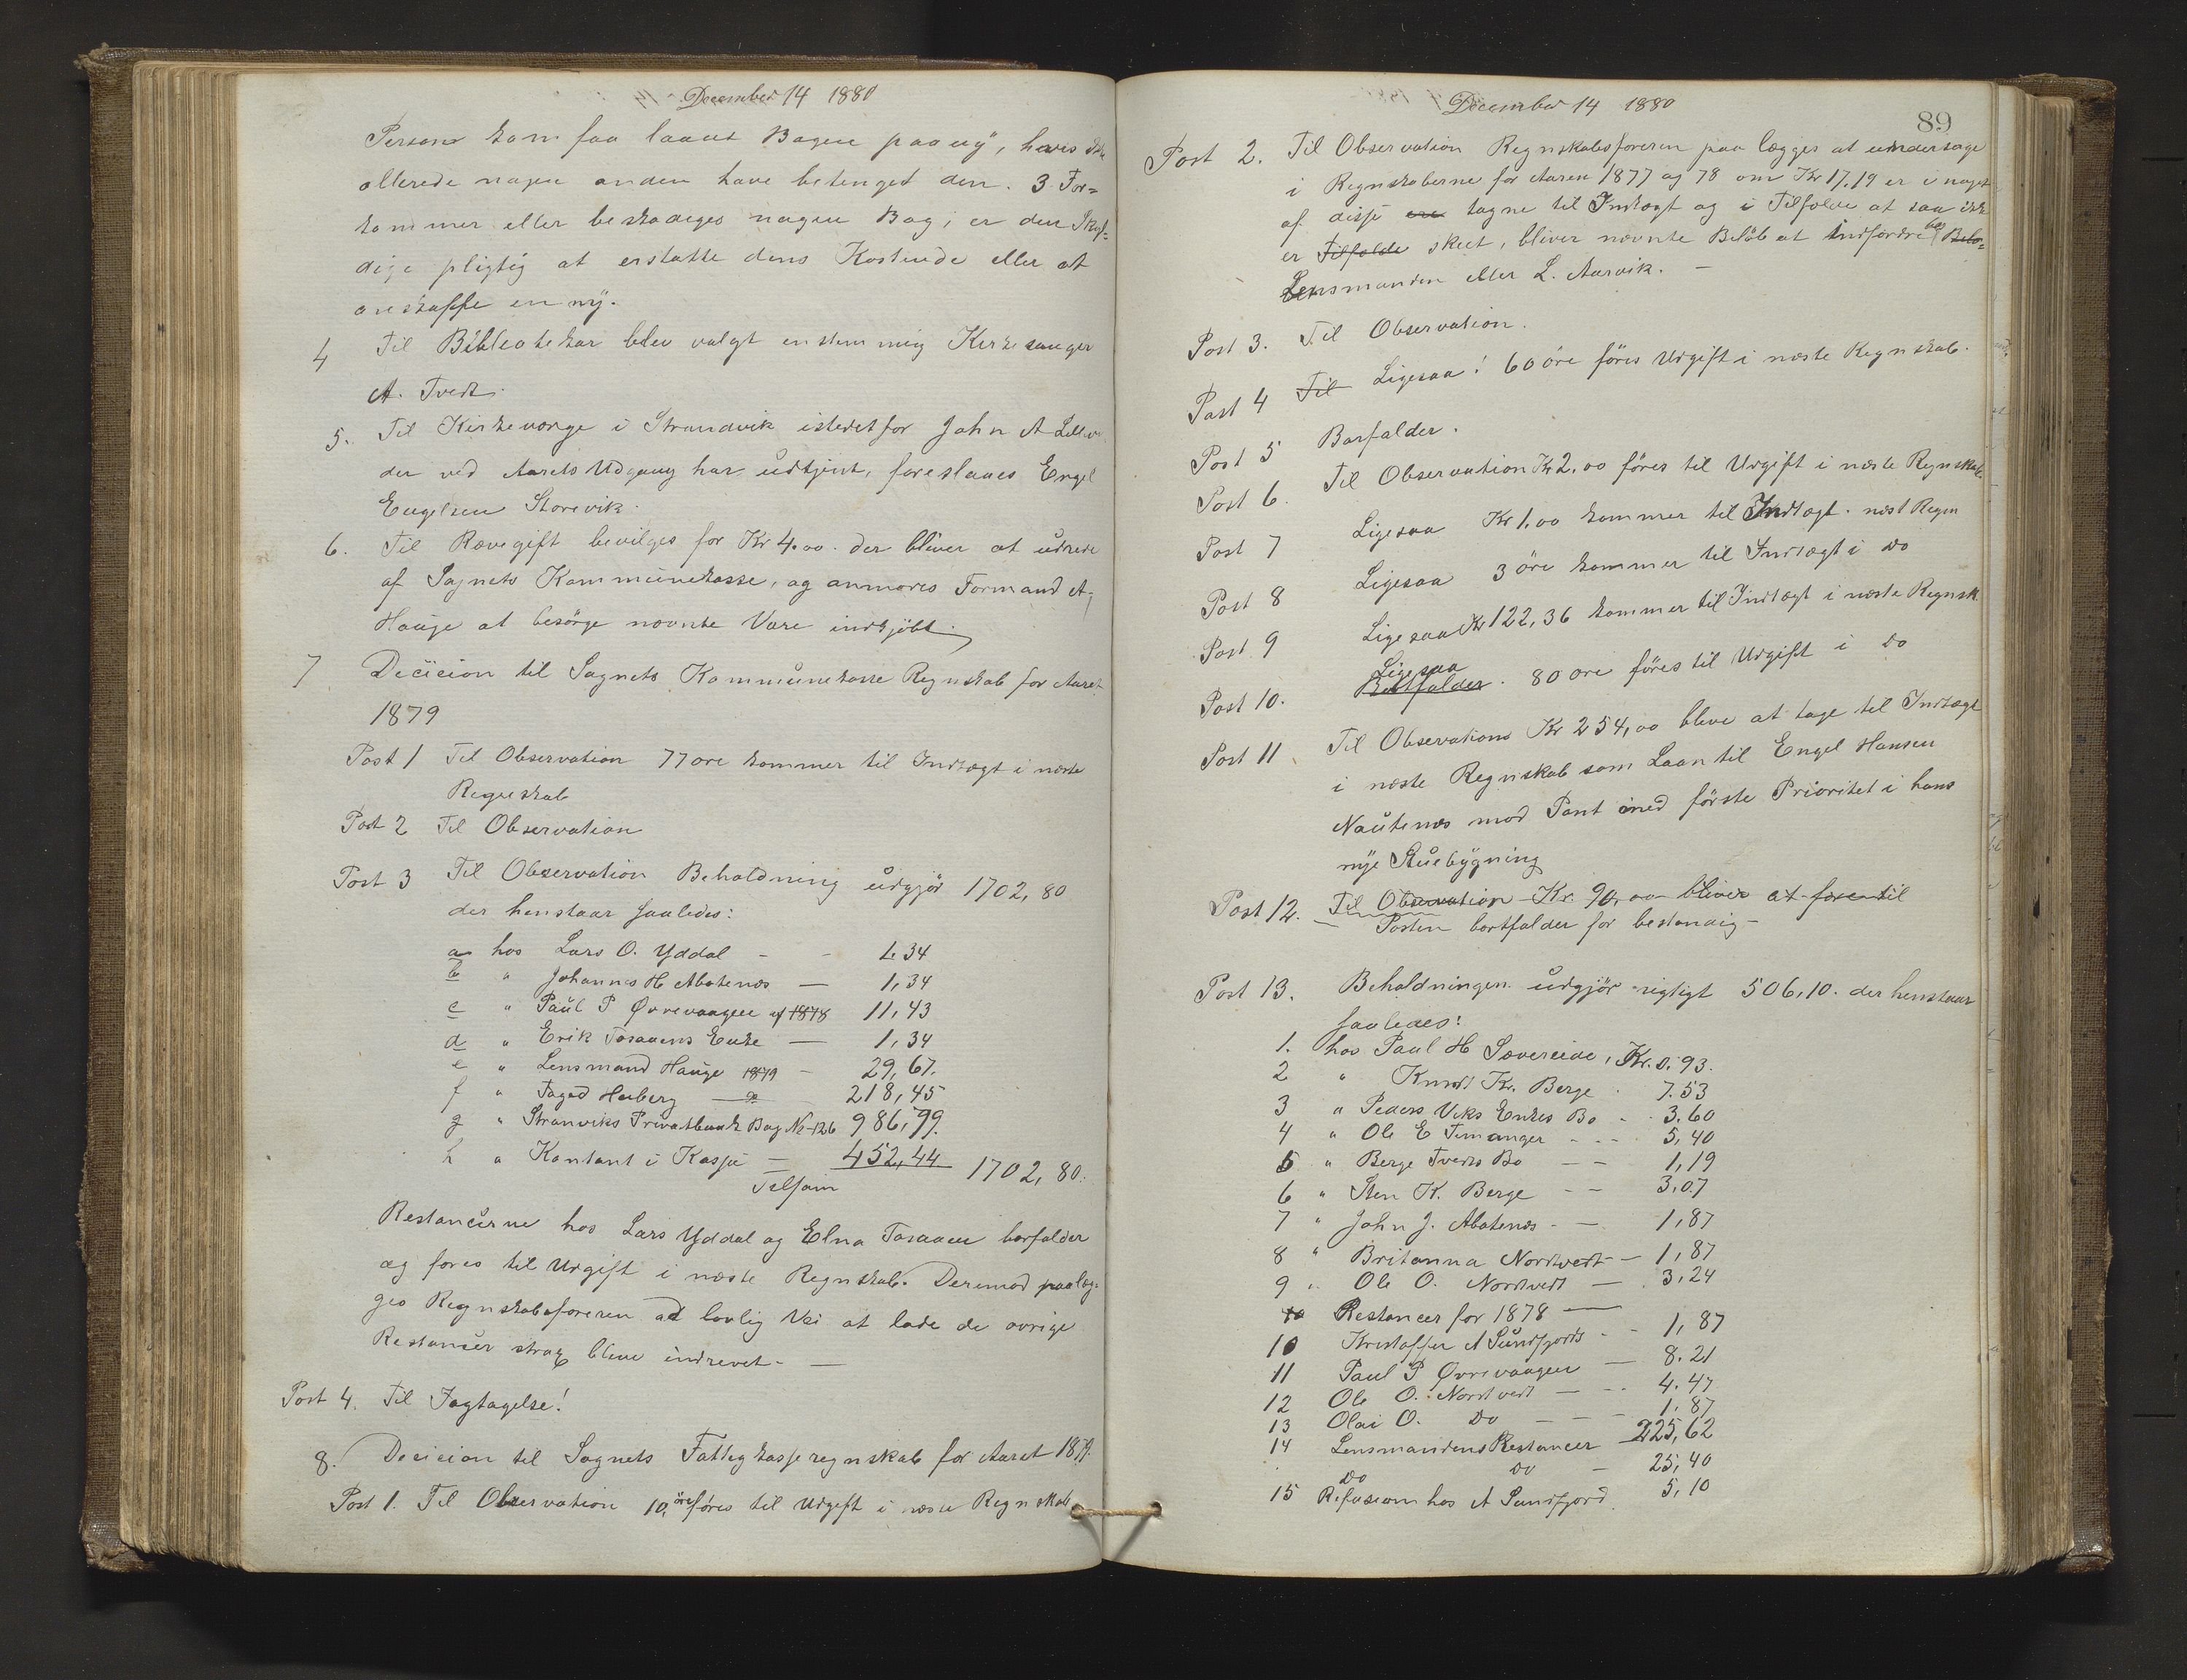 December 14 1880
Person kom faa laant Bogen paa ny, hvis ikke
allerede nogen anden have betinget den. 3. For=
kommer eller beskadiges nogen Bog, er den Skyl=
dige pligtig at erstatte dens Kostende eller at
anskaffe en ny.
4 Til Bibliotekar blev valgt enstemmig Kirkesanger
A. Tvedt.
5. Til Kirkeværge i Strandvik istedetfor John A
der ved Aarets Udgang har udtjent, foreslaaes Engel
Engelsen Storevik.
6. Til Rævegift bevilges for Kr 4.00. der bliver at udrede
af Sognets Kommunekasse, og anmodes Formand A.
Hauge at besørge nævnte Vare indkjøbt.
7 Decicion til Sognets Kommunekasse Regnskab for Aaret
1879
Post 1 Til Observation 77 øre kommer til Indtægt i næste
Regnskab
Post 2 Til Observation
Post 3 Til Observation Beholdning udgjør 1702,80
der henstaar saaledes:
a hos Lars O. Yddal - - 1.34
b " Johannes H Abotenes — 1,34
c " Paul P Øvrevaagen af 1878 11,43
d " Erik Tosaaens Enke — 1,34
e " Lensmand Hauge 1879 - 29,67.
f " Foged Heiberg — 218,45
g " Stranviks Privatbank Bog No 126 986,79.
h " Kontant i Kasse — 452,44
Tilsam 1702,80.
Restancerne hos Lars Yddal og Elna Tosaaen borfalder
og føres til Udgift i næste Regnskab. Derimod paalæg=
ges Regnskabsføreren ad lovlig Vei at lade de øvrige
Restancer strax blive indrevet. —
Post 4. Til Iagtagelse!
8. Decicion til Sognets Fattigkasseregnskab for Aaret 1879.
Post 1. Til Observation 10, øre føres til Udgift i næste Regnskab
December 14 1880
89
Post 2. Til Observation Regnskabsføreren paa lægges at undersøge
i Regnskaberne for Aaren 1877 og 78 om Kr 17.19 er i noget
af disse ere tagne til Indtægt og i Tilfælde at saa ikke
er Tilfælde skeet, bliver nævnte Beløb at indfordre hos Belø=
Lensmanden eller L. Aarvik. —
Post 3. Til Observation.
Post 4 Til Ligesaa! 60 øre føres Udgift i næste Regnskab.
Post 5 Borfalder.
Post 6. Til Observation Kr 2.00 føres til Udgift i næste Regnskab.
Post 7 Ligesaa Kr 1,00 kommer til Indtægt. næst Regn
Post 8 Ligesaa 3 öre kommer til Indtægt i Do
Post 9 Ligesaa Kr 122,36 kommer til Indtægt i næste Regnsk.
Ligesaa
Post 10. Bortfalder. 80 øre føres til Udgift i Do
Post 11 Til Observation Kr 254,00 blive at tage til Indtægt
i næste Regnskab som Laan til Engel Hansen
Nautenes mod Pant med første Prioritet i hans
nye Stuebygning
Post 12. Til Observation Kr. 90,00 bliver at føres til
Posten bortfalder for bestandig —
Post 13. Beholdningen udgjør rigtigt 506,10. der henstaar
saaledes:
1. hos Paul H Sævereide, Kr. 0.93.
2 " Knudt Kr. Berge . 7.53
3 " Peders Viks Enkes Bo - 3.60
4 " Ole E Timanger - - - 5,40
5 " Berge Tvedts Bo - - 1,19
6 " Sten K. Berge - - 3,07
7 " John J. Abotenes - — 1,87
8 " Britanna Nordtvedt - — 1,87
9 " Ole O. Nordtvedt — 3,24
10 Restancer for 1878 —
10 Kristoffer A Sundfjords - - 1,87
11 Paul P Øvrevaagen — 8.21
12 Ole O. Nordtvedt — - - 4.47
13 Olai O. Do — - - 1.87
14 Lensmandens Restancer 225,62
Do Do — 25,40
15 Refusion hos A Sundfjord. 5,10